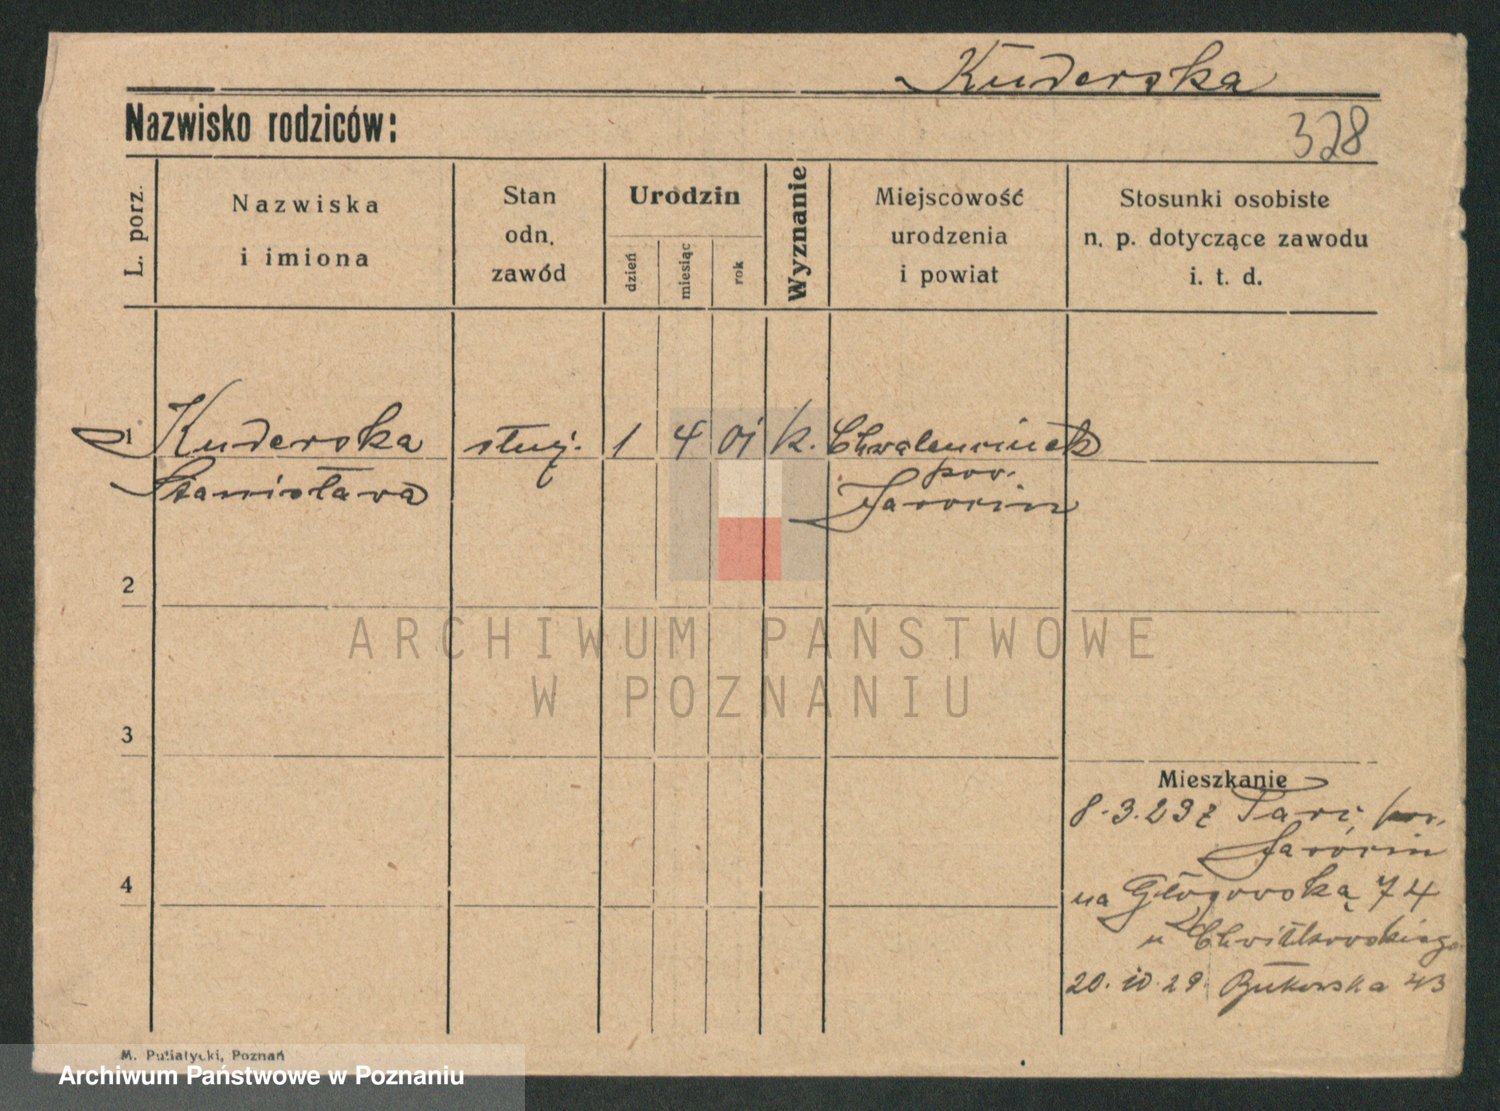 Kuderska
Nazwisko rodziców:
328
L. porz.
Nazwiska
i imiona
Stan
odn.
zawód
Urodzin
dzień
miesiąc
rok
Wyznanie
Miejscowość
urodzenia
i powiat
Stosunki osobiste
n. p. dotyczące zawodu
i. t. d.
1 Kuderska służ. 1 4 01 k.
pow.
Stanisława Jarocin
2
ARCHIWUM PAŃSTWOWE
W POZNANIU
3
Mieszkanie
8.3.29 z pow.
Jarocin
4
na Głogowską 74
u
20.10.29 Bukowska 43
M. Putiatycki, Poznań
Archiwum Państwowe w Poznaniu